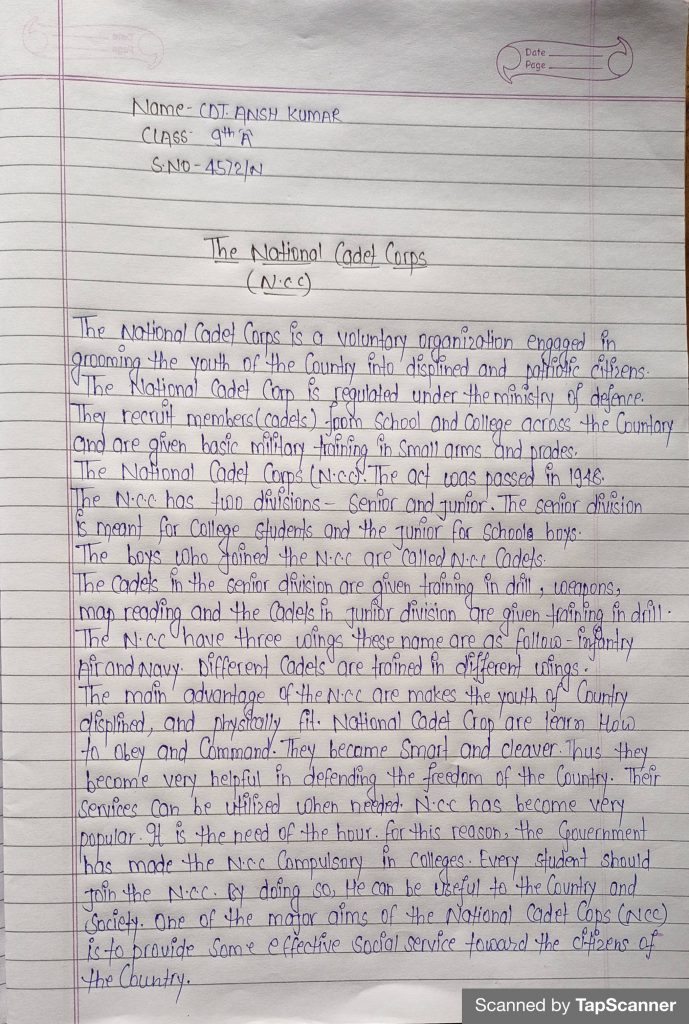 Date
Page
Name- CDT. ANSH KUMAR
CLASS- 9th 'A'
S.NO - 4572/N
The National Cadet Corps
(N.C.C)
The National Cadet Corps is a voluntary organization engaged in
grooming the youth of the Country into displined and patriotic citizens.
The National Cadet Corp is regulated under the ministry of defence.
They recruit members(cadets) from School and College across the Countary
and are given basic military training in Small arms and prades.
The National Cadet Corps (N.C.C). The act was passed in 1948.
The N.C.C has two divisions - Senior and junior. The senior division
is meant for College students and the junior for Schools boys.
The boys who joined the N.C.C are called N.C.C Cadets.
The Cadets in the senior division are given training in drill, weapons,
map reading and the Cadets in junior division are given training in drill.
The N.C.C have three wings these name are as follow - infantry
Air and Navy. Different Cadets are trained in different wings.
The main advantage of the N.C.C are makes the youth of Country
displined, and physically fit. National Cadet Crop are learn How
to obey and Command. They become Smart and cleaver. Thus they
become very helpful in defending the freedom of the Country. Their
Services can be utilized when needed. N.C.C has become very
popular. It is the need of the hour. for this reason, the Government
has made the N.C.C Compulsory in Colleges. Every student should
join the N.C.C. By doing so, He can be useful to the Country and
Society. One of the major aims of the National Cadet Cops (NCC)
is to provide Some effective Social service toward the citizens of
the Country.
Scanned by TapScanner